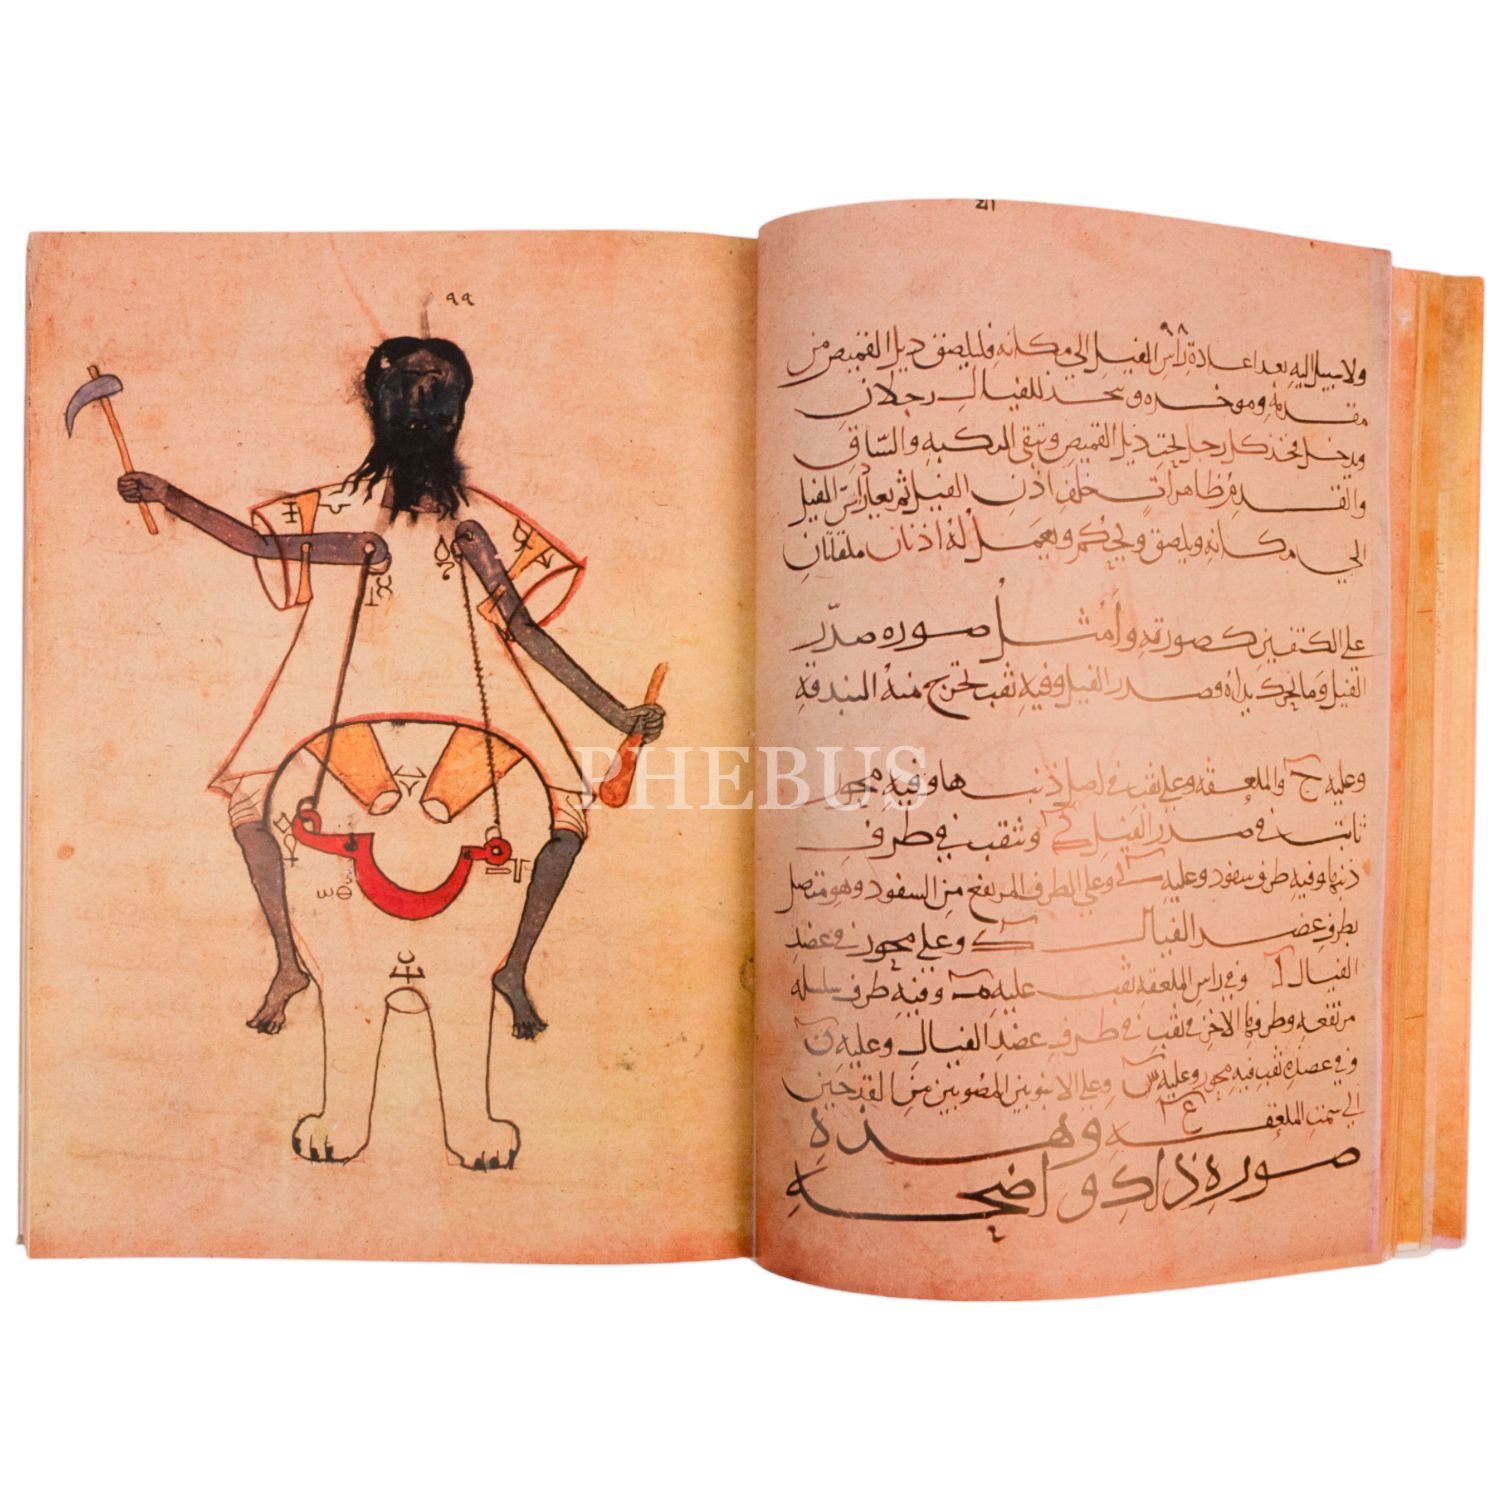 ٩٨
ولا سبيل إليه بعد اعادة راس الفيل الي مكانه فليلصق ذيل القميص من
مقدمه وموخره ويتخذ للفيال رجلان
ويدخل فخذ كل رجل تحت ذيل القميص وتبقى الركبه والساق
والقدم ظاهرات خلف اذن الفيل ثم يعاد راس الفيل
الي مكانه ويلصق ويحكم ويعمل له اذنان ملقاتان
علي الكتفين كصورته وامثل صوره صدر
الفيل وما يحرك يداه وصدر الفيل وفيه ثقب تخرج منه البندقه
وعليه ح والملعقه وعلي ثقب في اصل ذنبها وفيه محور
ثابت في صدر الفيل وثقب في طرف
ذنبها وفيه طرف سفود وعليه وعلي الطرف المرتفع من السفود وهو متصل
بطرف عضد الفيال ك وعلي محور في عضد
الفيال وفي راس الملعقه ثقب عليه م وفيه طرف سلسله
مرتفعه وطرفها الاخر في ثقب في طرف عضد الفيال وعليه ن
وفي عضده ثقب فيه محور وعليه س وعلي الانبوبين المصوبين من القدحين
الي سمت الملعقه ع وهذه
صوره ذلك واضحه
٩٩
PHEBUS